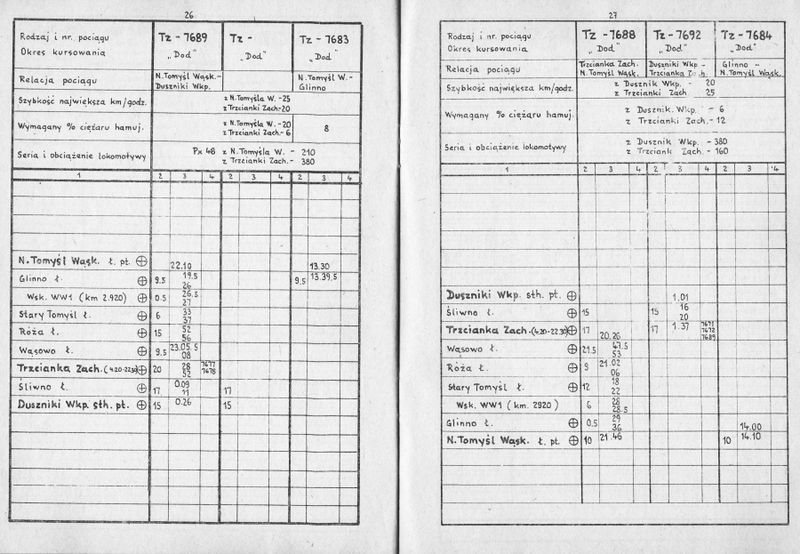 26
Rodzaj i nr. pociągu Tz - 7689 Tz - Tz - 7683
Okres kursowania "Dod" "Dod" "Dod"
Relacja pociągu N.Tomyśl Wąsk.- Duszniki Wkp. N.Tomyśl W.- Glinno
Szybkość największa km/godz. z N.Tomyśla W.-25
z Trzcianki Zach-20
Wymagany % ciężaru hamuj. z N.Tomyśla W.-20 8
z Trzcianki Zach.-6
Seria i obciążenie lokomotywy Px 48 z N.Tomyśla W. - 210
z Trzcianki Zach.- 380
1 2 3 4 2 3 4 2 3 4
N.Tomyśl Wąsk. ł. pt. 22.10 13.30
Glinno ł. 9.5 19.5 9.5 13.39.5
26
Wsk. WW1 (km 2.920) 0.5 26.5
27
Stary Tomyśl ł. 6 33
37
Róża ł. 15 52
56
Wąsowo ł. 9.5 23.05.5
08
Trzcianka Zach. (4.20-22.30) 20 28 7677
52 7678
Śliwno ł. 17 0.09 17
11
Duszniki Wkp. sth. pt. 15 0.26 15
27
Rodzaj i nr. pociągu Tz - 7688 Tz - 7692 Tz - 7684
Okres kursowania "Dod" "Dod" "Dod"
Relacja pociągu Trzcianka Zach. N.Tomyśl Wąsk. Duszniki Wkp - Trzcianka Zach. Glinno - N.Tomyśl Wąsk.
Szybkość największa km/godz. z Duszniki Wkp. - 20
z Trzcianki Zach 25
Wymagany % ciężaru hamuj. z Dusznik. Wkp - 6
z Trzcianki Zach.-12
Seria i obciążenie lokomotywy z Dusznik Wkp. -380
z Trzciank Zach. -160
1 2 3 4 2 3 4 2 3 4
Duszniki Wkp. sth. pt. 1.01
Śliwno ł. 15 15 16
20
Trzcianka Zach.(4.20-22.30) 17 20.26 17 1.37 7671
7672
7689
Wąsowo ł. 21.5 47.5
53
Róża ł. 9 21.02
06
Stary Tomyśl ł. 12 18
22
Wsk. WW1 (km. 2920) 6 28
28.5
Glinno ł. 0.5 29 14.00
36
N.Tomyśl Wąsk. ł. pt. 10 21.46 10 14.10